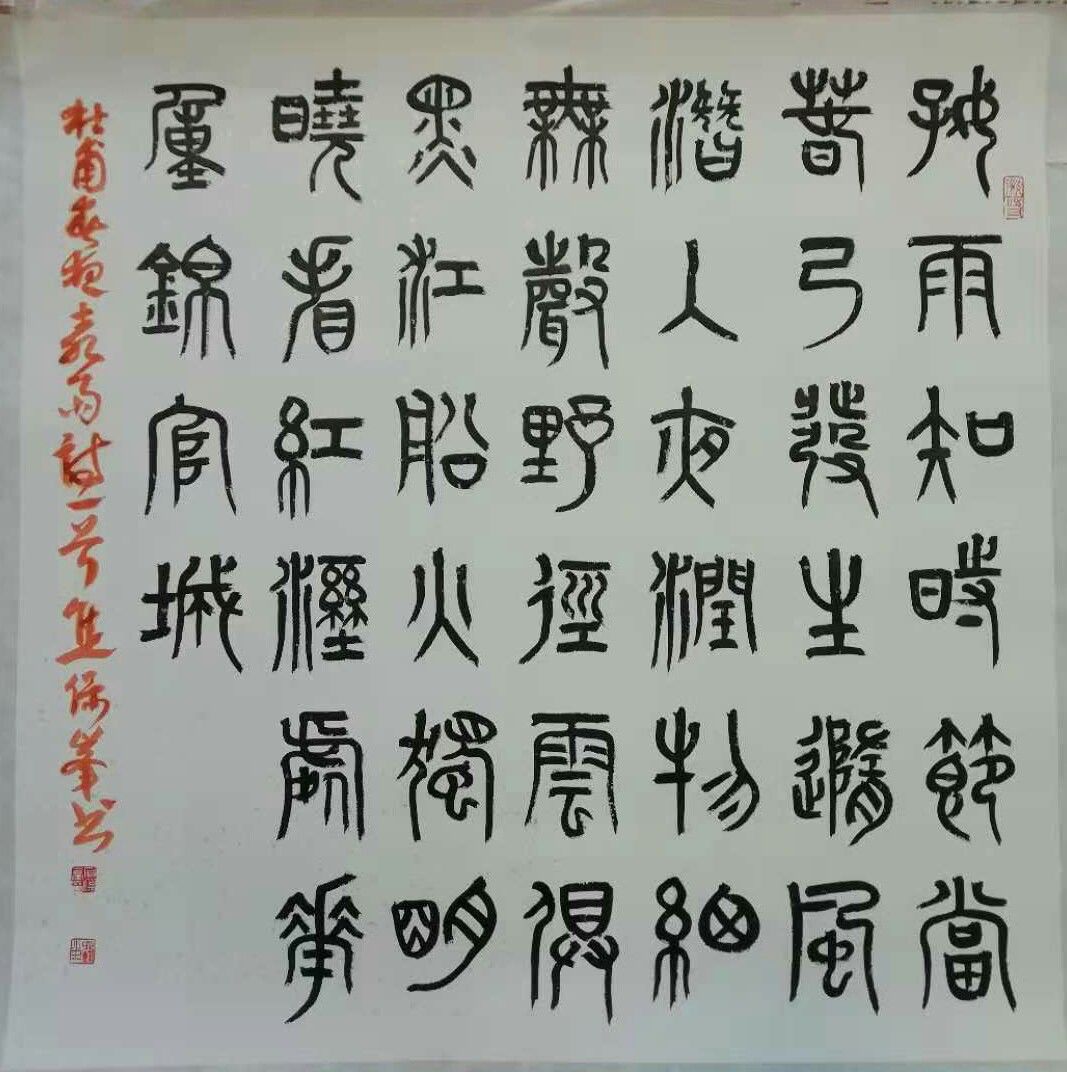 好雨知時節當
春乃發生隨風
潛入夜潤物細
無聲野徑雲俱
黑江船火獨明
曉看紅溼處華
重錦官城
杜甫春夜喜雨詩一首焦保书